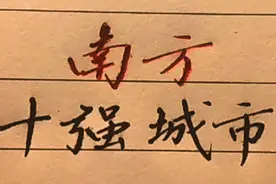 南方
十强城市